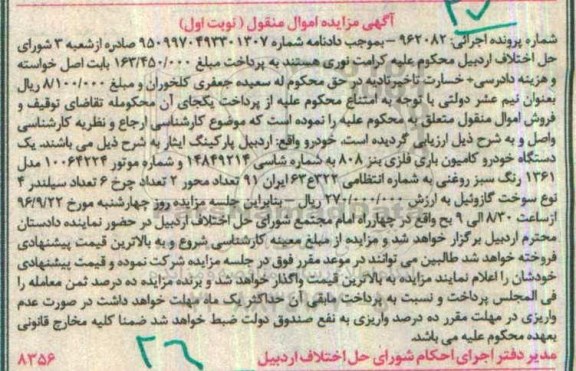 ۲۷
آگهی مزایده اموال منقول ( نوبت اول)
شماره پرونده اجرائی: ۹۶۲۰۸۲ –بموجب دادنامه شماره ۹۵۰۹۹۷۰۴۹۳۳۰۱۳۰۷ صادره ازشعبه ۳ شورای
حل اختلاف اردبیل محکوم علیه کرامت نوری هستند به پرداخت مبلغ ۱۶۳/۴۵۰/۰۰۰ بابت اصل خواسته
و هزینه دادرسی+ خسارت تاخیر تادیه در حق محکوم له سعیده جعفری کلخوران و مبلغ ۸/۱۰۰/۰۰۰ ریال
بعنوان نیم عشر دولتی با توجه به امتناع محکوم علیه از پرداخت یکجای آن محکومله تقاضای توقیف و
فروش اموال منقول متعلق به محکوم علیه را نموده است که موضوع کارشناسی ارجاع و نظریه کارشناسی
واصل و به شرح ذیل ارزیابی گردیده است. خودرو واقع: اردبیل پارکینگ ایثار به شرح ذیل می باشند. یک
دستگاه خودرو کامیون باری فلزی بنز ۸۰۸ به شماره شاسی ۱۴۸۴۹۲۱۴ و شماره موتور ۱۰۰۶۴۲۲۴ مدل
۱۳۶۱ رنگ سبز روغنی به شماره انتظامی ۳۲۲ع۶۳ ایران ۹۱ تعداد محور ۲ تعداد چرخ ۶ تعداد سیلندر ۴
نوع سوخت گازوئیل به ارزش ۲۷۰/۰۰۰/۰۰۰ ریال – بنابراین جلسه مزایده روز چهارشنبه مورخ ۹۶/۹/۲۲
از ساعت ۸/۳۰ الی ۹ صبح واقع در چهارراه امام مجتمع شورای حل اختلاف اردبیل در حضور نماینده دادستان
محترم اردبیل برگزار خواهد شد و مزایده از مبلغ معینه کارشناسی شروع و به بالاترین قیمت پیشنهادی
فروخته خواهد شد طالبین می توانند در موعد مقرر فوق در جلسه مزایده شرکت نموده و قیمت پیشنهادی
خودشان را اعلام نمایند مزایده به بالاترین قیمت واگذار خواهد شد و برنده مزایده ده درصد ثمن معامله را
فی المجلس پرداخت و نسبت به پرداخت مابقی آن حداکثر یک ماه مهلت خواهد داشت در صورت عدم
واریزی در مهلت مقرر ده درصد واریزی به نفع صندوق دولت ضبط خواهد شد ضمنا کلیه مخارج قانونی
بعهده محکوم علیه می باشد.
مدیر دفتر اجرای احکام شورای حل اختلاف اردبیل
۸۳۵۶
۲۶